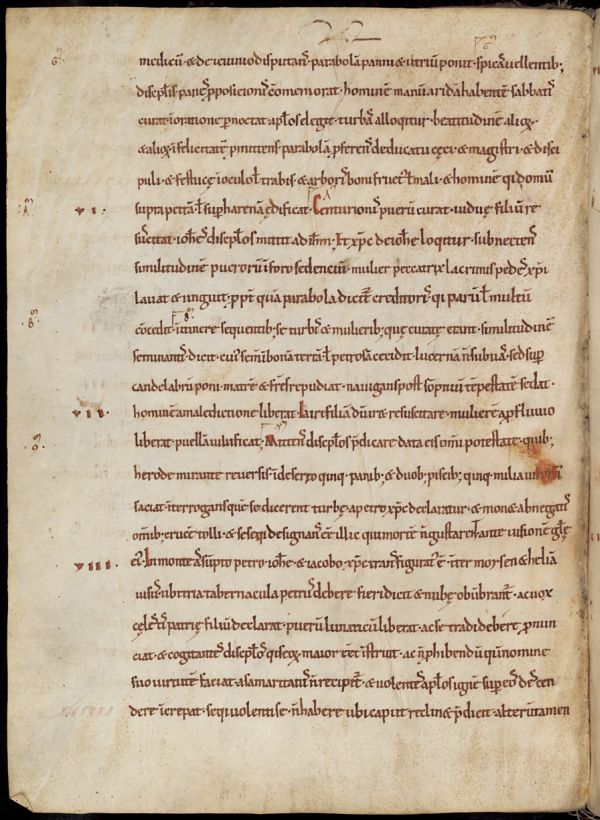 medicū & de ieiunio disputans parabolā panni & utriū ponit · spicas uellentib;
discip̄lis panes ꝓpositionis cōmemorat · hominē manū aridā habentē sabbatis
curat · ī oratione pernoctat · ap̄los elegit · turbā alloqitur · beatitudinē alioꝝ ·
& alioꝝ īfelicitatē p̄mittens · parabolā p̄ferens de ducatu cęci · & magistri & disci
puli · & festucę ī oculo ł trabis · & arboris boni fructus ł mali · & hominē qi domū
supra petrā ł sup harenā ędificat · Centurionis puerū curat · uiduę filiū re
·vi·
suscitat · ioh̄es discip̄los mittit ad ih̄m · Et xp̄c de ioh̄e loqitur · subnectens
similitudinē puerorū ī foro sedenciū · mulier peccatrix lacrimis pedes xp̄i
lauat & ungit · ppt̄ quā parabola dicit creditoris · qi parū ł multū
cōcedit · itinere sequentib; se turbis & mulierib; quę curatę erant · similitudinē
seminantis dicit · cuius semī ī bonā terrā ł petrosā cecidit · lucernā ñ sub uasᷤ sed sup
candelabrū poni · matrē & fr̄es repudiat · nauigans post sōpniū tēpestatē sedat ·
hominē a maledictione liberat · Iairi filiā dn̄s resuscitare · mulierē a ꝓfluuio
·vii·
liberat · puellā uiuificat · Mittens discip̄los p̄dicare data eis omī potestate · quib;
herode mirante reuersis ī deserto quinq; panib; & duob; piscib; quinq; milia
saciat · īterrogans que se dicerent turbę · a petro xp̄c declaratur · & mone abnegatis
omīb; crucē tolli · & se seqi · designans ēē illic qui mortē ñ gustarēt ante uisionē glę
ei᷒ · In monte assūpto petro · ioh̄e & iacobo · xp̄c transfigurat᷒ ē · īter moysen & heliā
·viii·
uisus · ubi tria tabernacula petrus debere fieri dicit · & nubę obūbrant · ac uox
cęlestis patris filiū declarat · puerū lunaticū liberat · ac se tradi debere ꝓnun
ciat · & cogitantes discip̄los qis eoꝝ maior ēēt īstruit · ac ñ phibendū qi ī nomine
suo uirtutē faciat · a samaritanis ñ recipit · & uolentes ap̄los ignē sup eos descen
dere īcrepat · sequi uolenti se · ñ habere ubi caput reclin& p̄dicit · alterū tamen